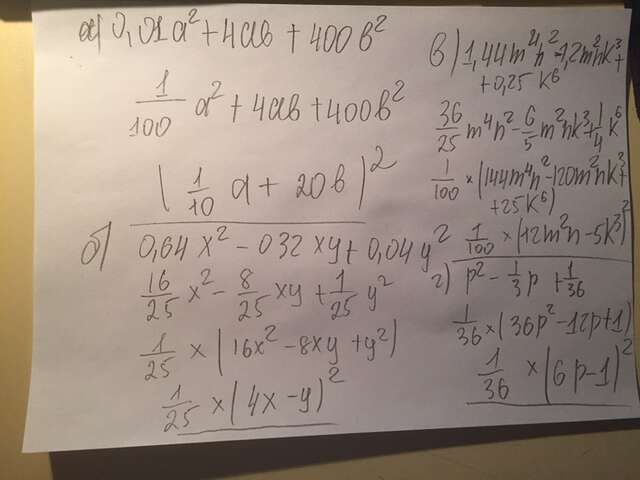 а) 0,01a²+4ab+400b²
1/100 a²+4ab+400b²
(1/10 a+20b)²
б) 0,64x²-032xy+0,04y²
16/25 x²-8/25 xy+1/25 y²
1/25 × (16x²-8xy+y²)
1/25 × (4x-y)²
в) 1,44m⁴n²-1,2m²nk³+
+0,25k⁶
36/25 m⁴n²-6/5 m²nk³+1/4 k⁶
1/100 × (144m⁴n²-120m²nk³+
+25k⁶)
1/100 × (12m²n-5k³)²
г) p²-1/3 p+1/36
1/36 × (36p²-12p+1)
1/36 × (6p-1)²